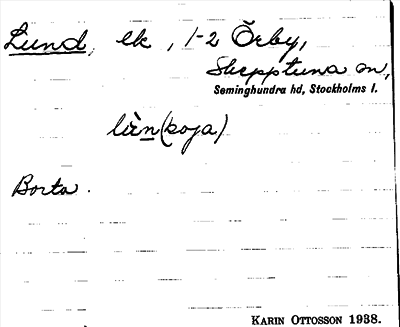 Lund, ek, 1-2 Örby,
Skepptuna sn,
Seminghundra hd, Stockholms l.
län(koja)
Borta.
KARIN OTTOSSON 1938.